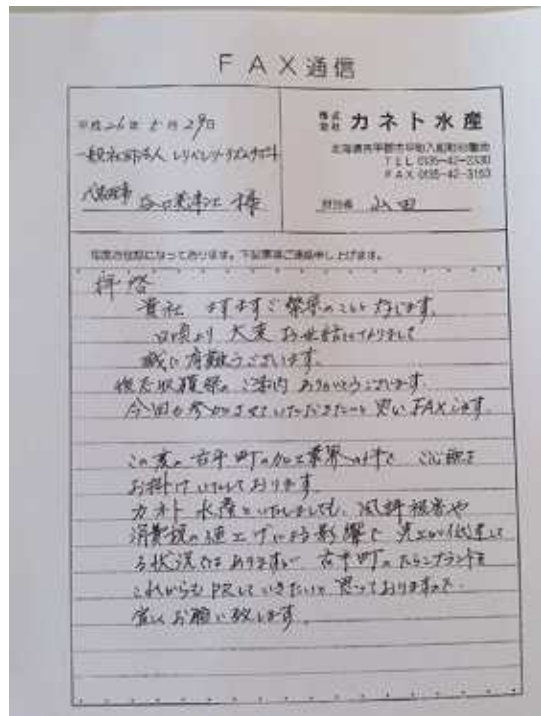 FAX通信
平成26年5月29日
一般社団法人
谷口美津江 様
株式会社 カネト水産
北海道古平郡古平町
TEL 0135-42-2330
FAX 0135-42-3153
担当者 山田
毎度お世話になっております。下記事項ご連絡申し上げます。
拝啓
貴社 ますますご繁栄のことと存じます。
日頃より 大変お世話になりまして
誠に有難うございます。
収穫祭のご案内 ありがとうございます。
今回も参加させていただきたいと思いFAXします。
この度の 古平町の加工業界の件で ご心配を
お掛けいたしております
カネト水産といたしましても、風評被害や
消費税の値上げによる影響で 売上が低迷して
る状況ではありますが 古平町のたらこブランドを
これからもPRしていきたいと思っておりますので
宜しくお願い致します。